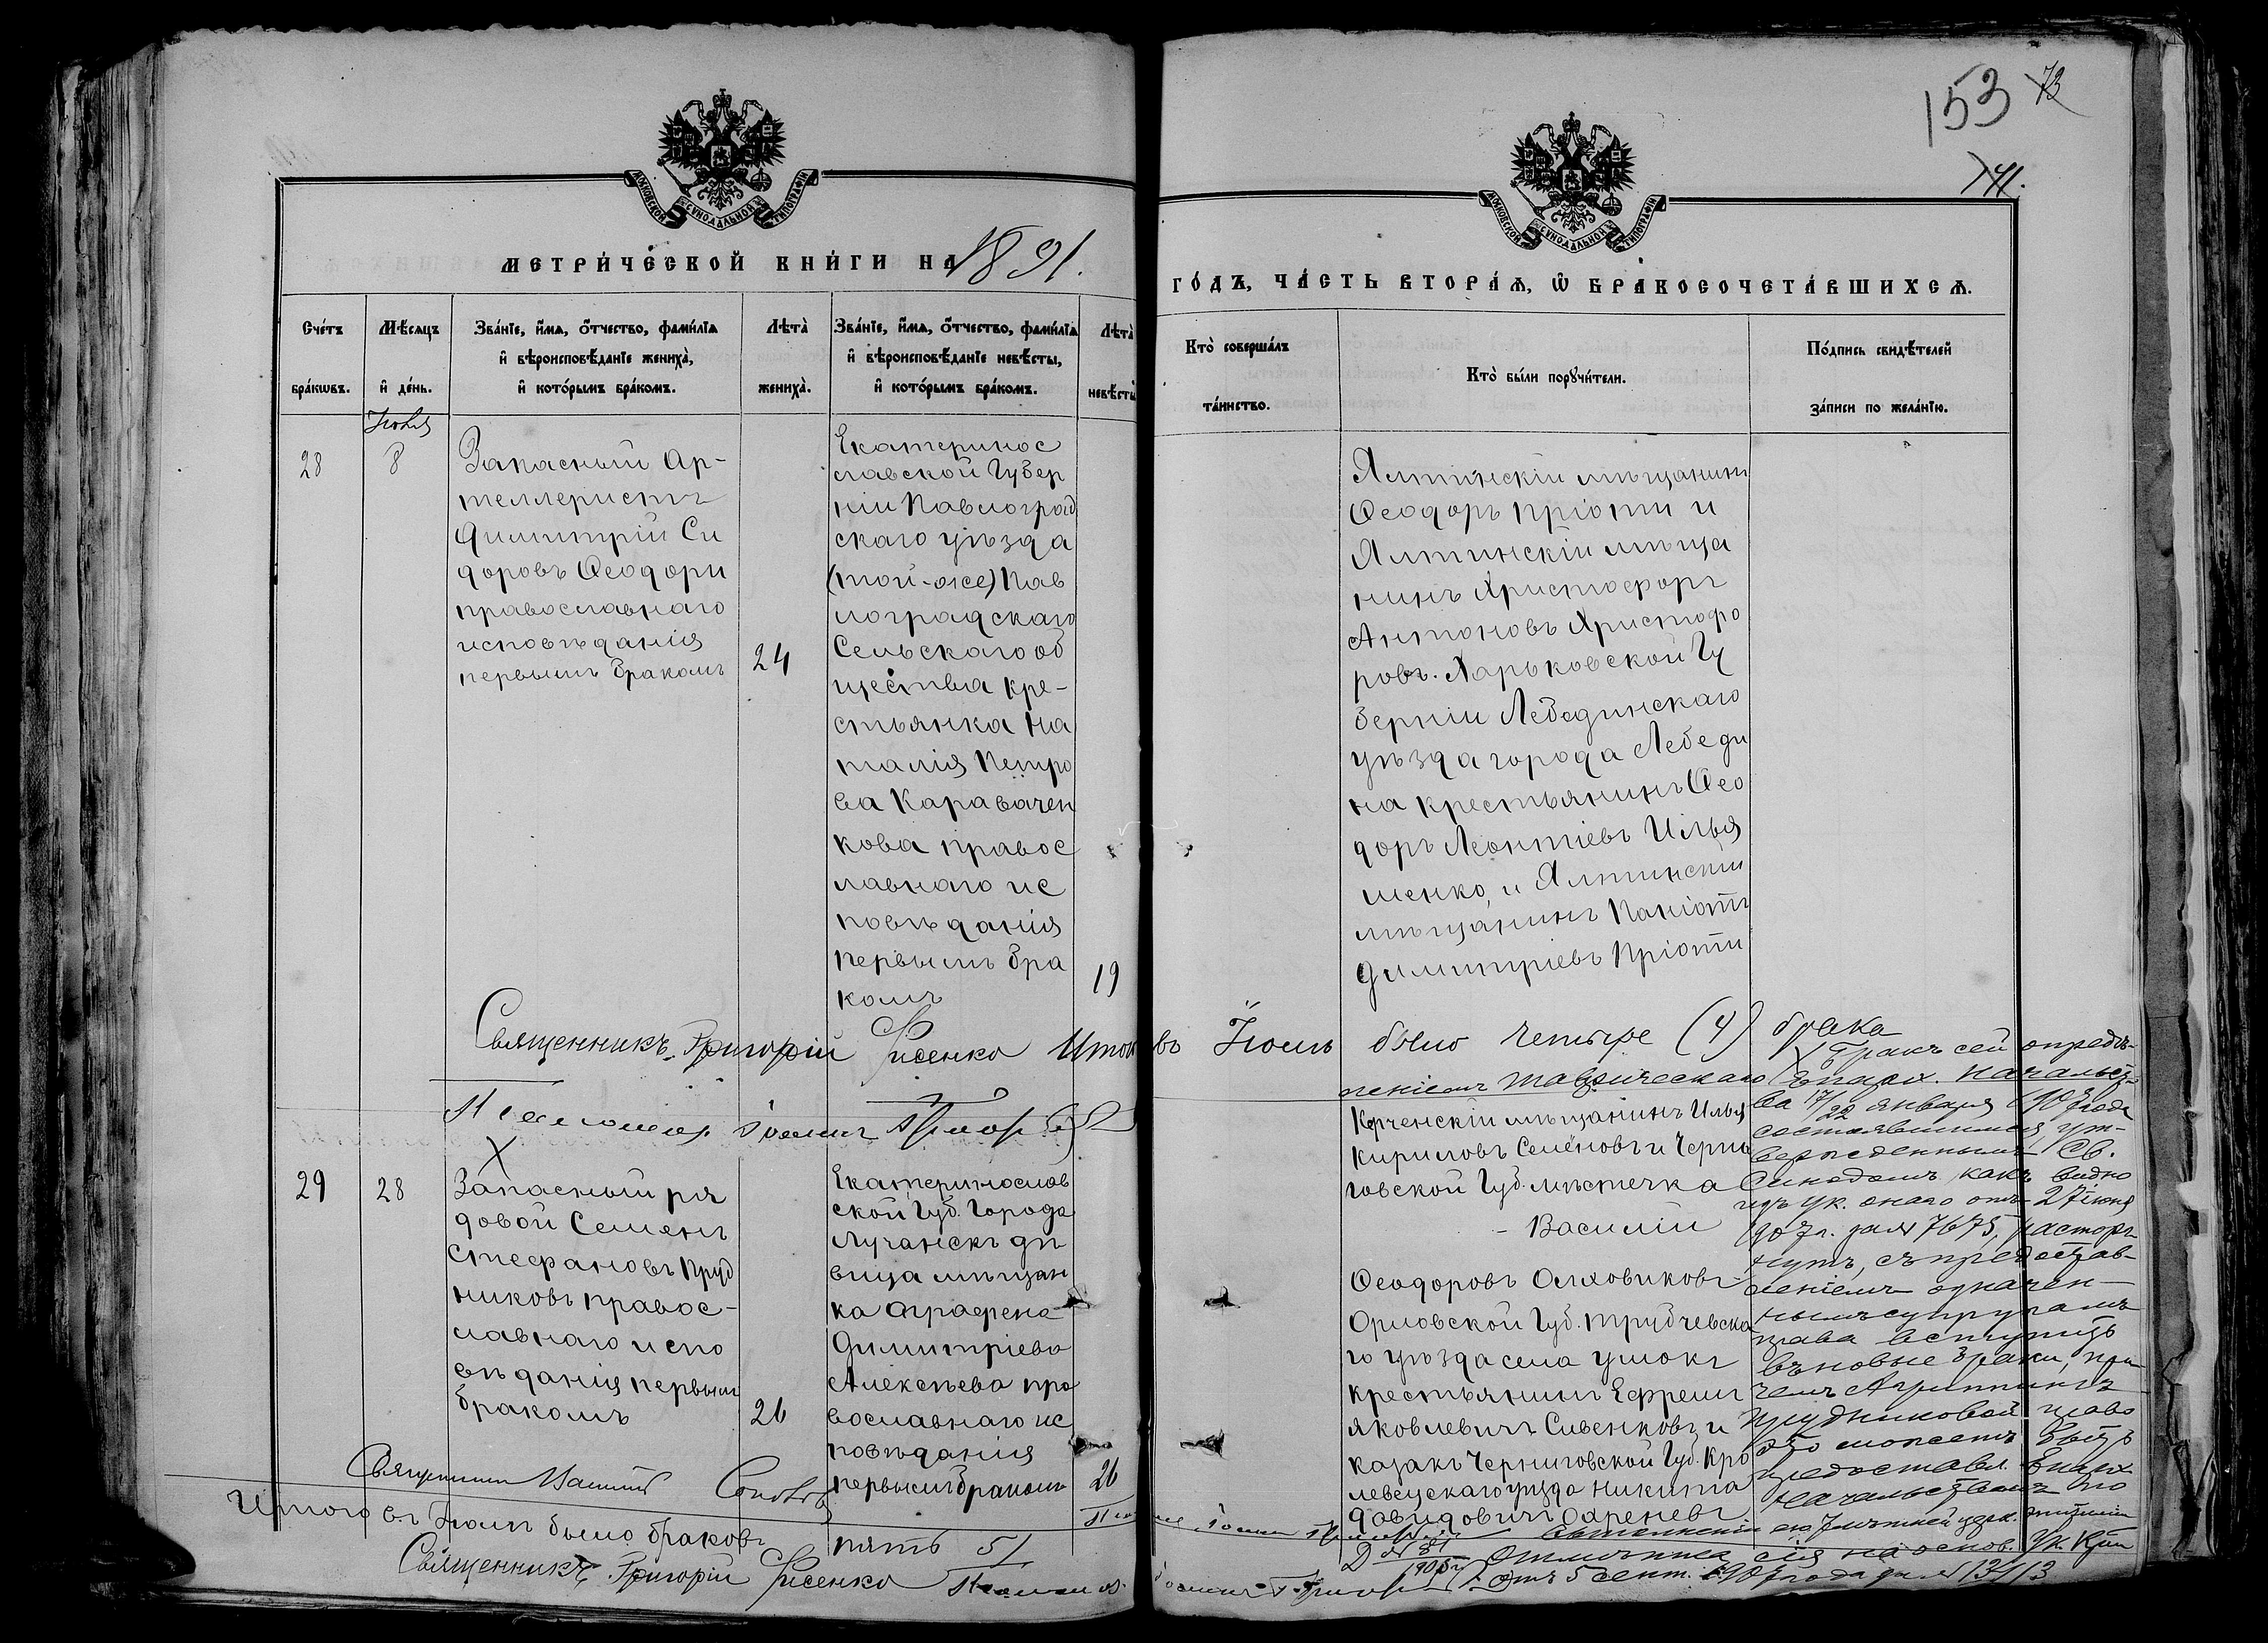 153 73
141.
МОСКОВСКОЙ СѴНОДАЛЬНОЙ ТИПОГРАФІИ
МОСКОВСКОЙ СѴНОДАЛЬНОЙ ТИПОГРАФІИ
МЕТРИ́ЧЕСКОЙ КНИ́ГИ НА 1891.
ГО́ДЪ, ЧА́СТЬ ВТОРА́Ѧ, Ѡ҆ БРАКОСОЧЕТА́ВШИХСѦ.
Сче́тъ
бра́кѡвъ.
Мѣ́сѧцъ
и҆ де́нь.
Зва́нїе, и҆́мѧ, ѻ҆́тчество, фами́лїѧ
и҆ вѣроисповѣ́данїе жениха̀,
и҆ кото́рымъ бра́комъ.
Лѣта̀
жениха̀.
Зва́нїе, и҆́мѧ, ѻ҆́тчество, фами́лїѧ
и҆ вѣроисповѣ́данїе невѣ́сты,
и҆ кото́рымъ бра́комъ.
Лѣта̀
невѣ́сты
Кто̀ соверша́лъ
та́инство.
Кто̀ бы́ли порꙋчи́тели.
По́дпись свидѣ́телей
за́писи по жела́нїю.
Іюля
28
8
Запасный Ар-
теллеристъ
Димитрій Си
доровъ Ѳеодори
православнаго
исповѣданія
первымъ бракомъ
24
Екатеринос
лавской Губер
ніи Павлоград
скаго уѣзда
(той-же) Пав
лоградскаго
Сельскаго об
щества кре-
стьянка На
талія Петро
ва Караван
кова правос
лавнаго ис
повѣданія
первымъ бра
комъ
19
Ялтинскій мѣщанинъ
Ѳеодоръ Пріоти и
Ялтинскій мѣща
нинъ Христофоръ
Антоновъ Христофо
ровъ. Харьковской Гу
берніи Лебединскаго
уѣзда города Лебеди
на крестьянинъ Ѳео
доръ Леонтіевъ Илья
шенко, и Ялтинскій
мѣщанинъ Паніотъ
Димитріевъ Пріоти
Священникъ Григорій Фисенко Итого въ Іюлѣ было четыре (4) брака
Псаломщ. Іоаннъ
29
28
Запасный ря
довой Семенъ
Стефановъ Пруд
никовъ правос-
лавнаго испо
вѣданія первымъ
бракомъ
26
Екатеринослав
ской Губ. Города
Луганскъ дѣ
вица мѣщан
ка Аграфена
Димитріева
Алексѣева пра
вославнаго ис
повѣданія
первымъ бракомъ
26
Керченскій мѣщанинъ Илья
Кириловъ Семёновъ и Черни
говской Губ. мѣстечка
- Василій
Ѳеодоровъ Ольховиковъ-
Орловской Губ. Трубчевска
го уѣзда села Умокъ
крестьянинъ Ефремъ
Яковлевичъ Сивенковъ и
казакъ Черниговской Губ. Кро
левецскаго уѣзда Никита
Давидовичъ Охреневъ
X Бракъ сей опредѣ-
леніемъ Таврическаго Епарх. начальст-
ва 17/22 января 1907 года
состоявшимся, ут-
вержденнымъ Св.
Синодомъ, какъ видно
изъ Ук. онаго отъ 27 іюня
1907 г. за № 7675, расторг-
нутъ, съ предостав-
леніемъ означен-
нымъ супругамъ
права вступить
въ новые браки, при
чемъ Агриппинѣ
Прудниковой право
это можетъ быть
предоставл. Епарх.
Начальствомъ по
Отмѣтка сія на основ. Ук.
отъ 5 сент. 1907 года за № 13113
Священникъ
Итого въ Іюлѣ было браковъ пять 5/
Священникъ Григорій Фисенко Псаломщ.